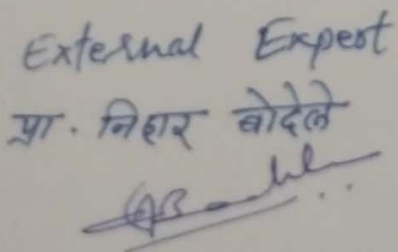 External Expert
प्रा. निहार बोदेले